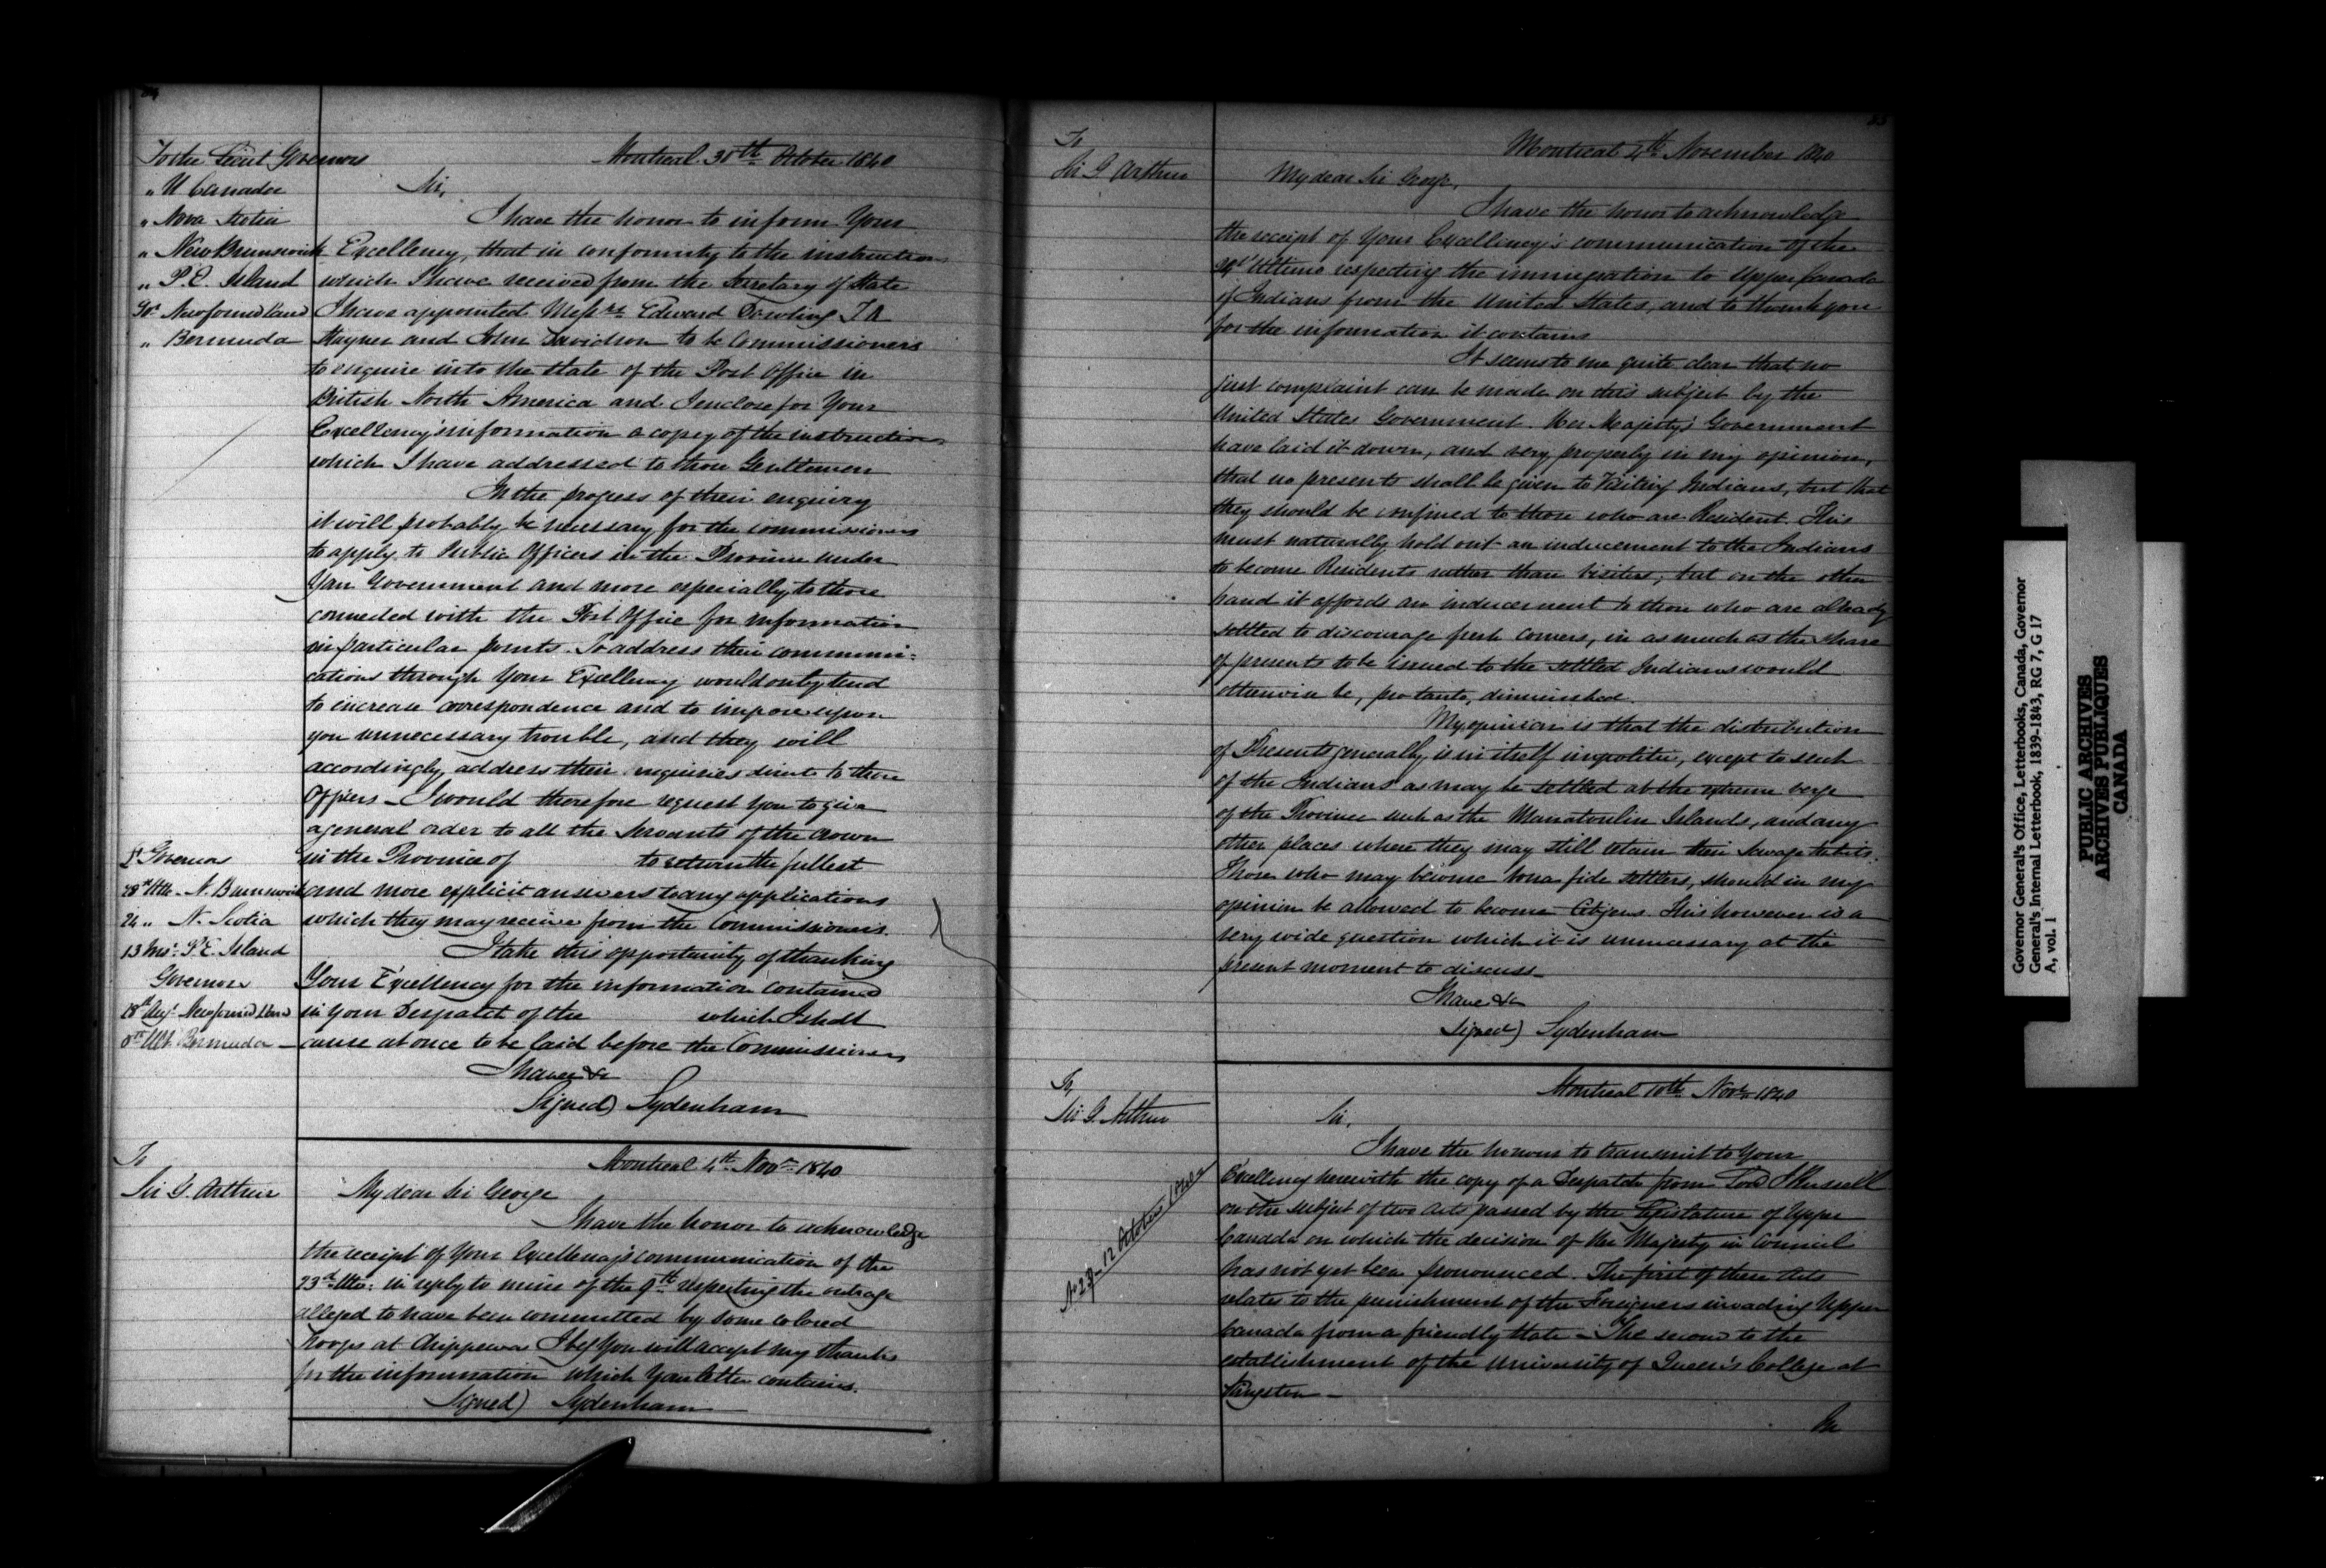 24
To the Lieut Governors
" U Canada
" Nova Scotia
" New Brunswick
" P.E. Island
Gr. Newfoundland
" Bermuda
Montreal 30th October 1840
Sir,
I have the honor to inform Your
Excellency, that in conformity to the instructions
which I have received from the Secretary of State
I have appointed Messrs Edward Dowling T A
Stayner and John Davidson to be Commissioners
to enquire into the state of the Post Office in
British North America and I enclose for Your
Excellency's information a copy of the instructions
which I have addressed to those Gentlemen
In the progress of their enquiry
it will probably be necessary for the commissioners
to apply to Public Officers in the Province under
Your Government and more especially to those
connected with the Post Office for information
in particular points. To address their communi=
cations through Your Excellency would only tend
to increase correspondence and to impose upon
you unnecessary trouble, and they will
accordingly address their enquiries direct to those
Officers - I would therefore request You to give
a general order to all the Servants of the Crown
in the Province of to return the fullest
and more explicit answers to any applications
which they may receive from the Commissioners.
I take this opportunity of thanking
Your Excellency for the information contained
in Your Despatch of the which I shall
cause at once to be laid before the Commissioners
I have &c
Signed) Sydenham
Lt Governor
28th Ulto - N. Brunswick
24 " N. Scotia
13 Inst P.E. Island
Governor
18th Augt Newfoundland
8th Ult Bermuda -
To
Sir G. Arthur
Montreal 4th Novr 1840
My dear Sir George
I have the honor to acknowledge
the receipt of Your Excellency's communication of the
23rd Ulto: in reply to mine of the 9th respecting the outrage
alleged to have been committed by some colored
Troops at Chippewa I beg You will accept my thanks
for the information which Your letter contains.
Signed) Sydenham
25
To
Sir G Arthur
Montreal 4th November 1840
My dear Sir George,
I have the honor to acknowledge
the receipt of Your Excellency's communication of the
Ultimo respecting the immigration to Upper Canada
of Indians from the United States, and to thank you
for the information it contains
It seems to me quite clear that no
just complaint can be made on this subject by the
United States Government. Her Majesty's Government
have laid it down, and very properly in my opinion,
that no presents shall be given to Visiting Indians, but that
they should be confined to those who are Resident. This
must naturally hold out an inducement to the Indians
to become Residents rather than Visiters; but on the other
hand it affords an inducement to those who are already
settled to discourage fresh comers, in as much as the share
of presents to be issued to the settled Indians would
otherwise be, pro tanto, diminished.
My opinion is that the distribution
of Presents generally is in itself impolitic, except to such
of the Indians as may be settled at the extreme verge
of the Province such as the Manatoulin Islands, and any
other places where they may still retain their Savage habits.
Those who may become bona fide settlers, should in my
opinion be allowed to become Citizens. This however is a
very wide question which it is unnecessary at the
present moment to discuss -
I have &c
Signed) Sydenham
To,
Sir G. Arthur
Montreal 10th Novr 1840
Sir,
I have the honour to transmit to Your
Excellency herewith the copy of a Despatch from Lord J Russell
on the subject of two Acts passed by the Legislature of Upper
Canada on which the decision of Her Majesty in Council
has not yet been pronounced. The first of these Acts
relates to the punishment of the Foreigners invading Upper
Canada from a friendly State - The second to the
establishment of the University of Queen's College at
Kingston -
12 October
Governor General's Office, Letterbooks, Canada, Governor
General's Internal Letterbook, 1839-1843, RG 7, G 17
A, vol. 1
PUBLIC ARCHIVES
ARCHIVES PUBLIQUES
CANADA